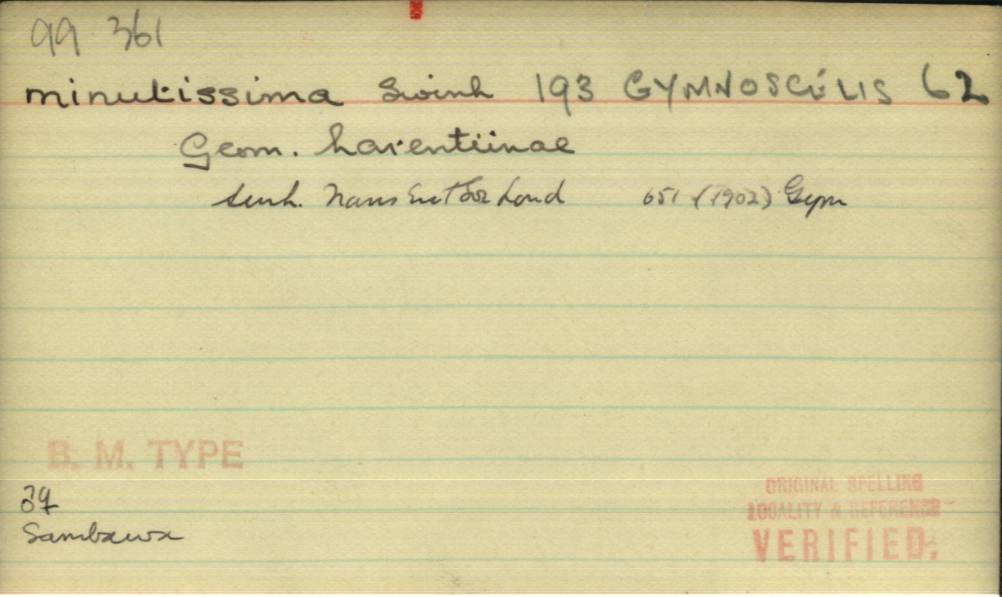 99 361
minutissima Swinh 193 GYMNOSCELIS 62
Geom. larentiinae
Swinh. Trans Ent Soc Lond 651 (1902) Gym
B. M. TYPE
Sambawa
ORIGINAL SPELLING
LOCALITY & REFERENCE
VERIFIED.